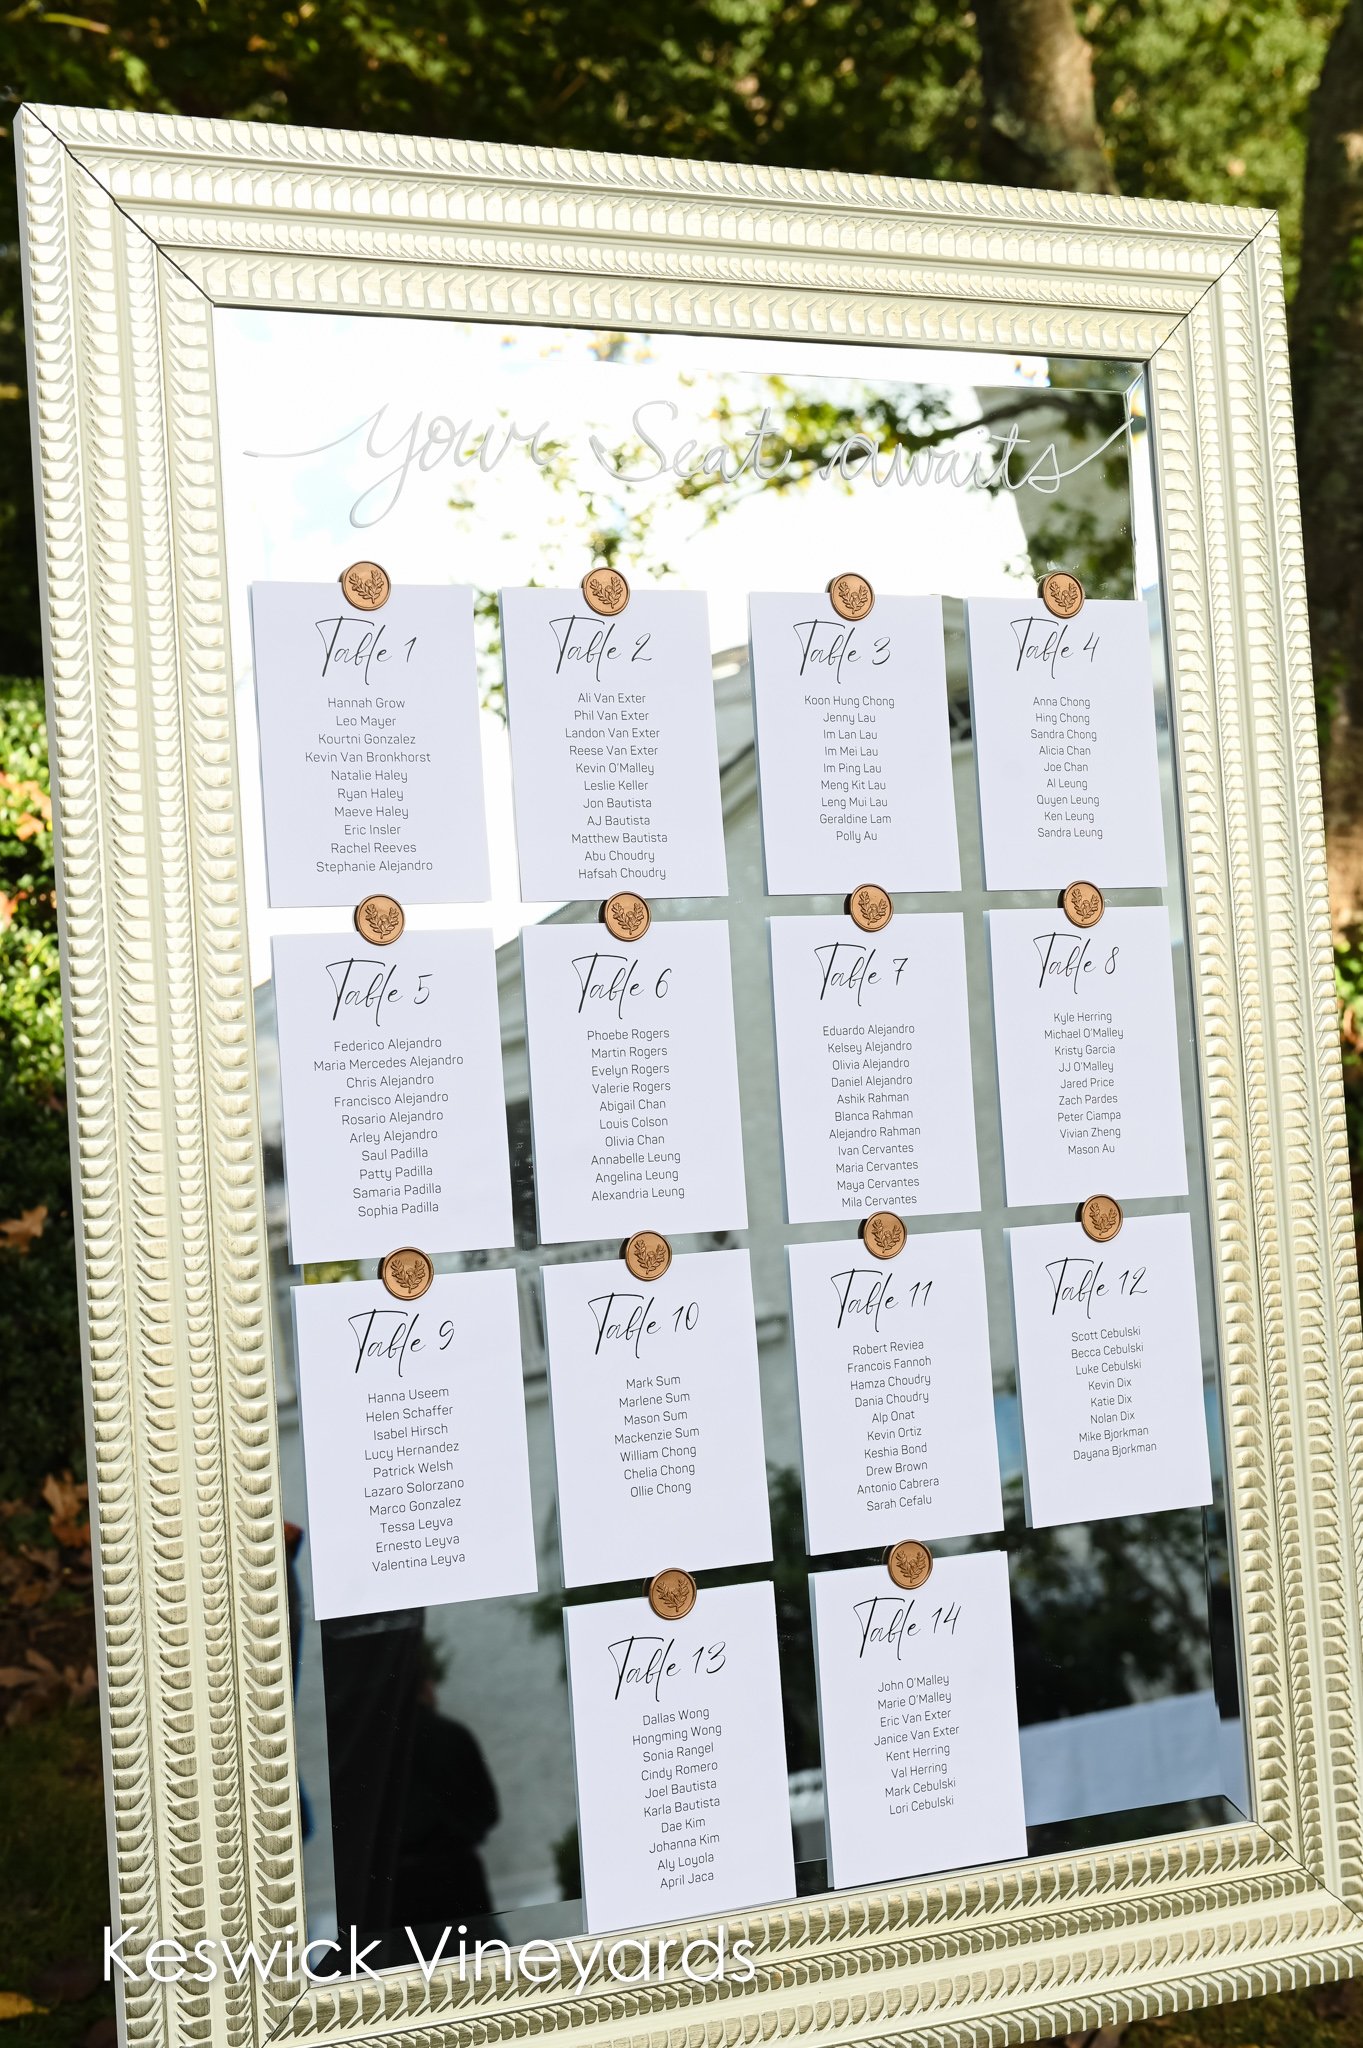 your Seat awaits
Table 1
Hannah Grow
Leo Mayer
Kourtni Gonzalez
Kevin Van Bronkhorst
Natalie Haley
Ryan Haley
Maeve Haley
Eric Insler
Rachel Reeves
Stephanie Alejandro
Table 2
Ali Van Exter
Phil Van Exter
Landon Van Exter
Reese Van Exter
Kevin O'Malley
Leslie Keller
Jon Bautista
AJ Bautista
Matthew Bautista
Abu Choudry
Hafsah Choudry
Table 3
Koon Hung Chong
Jenny Lau
Im Lan Lau
Im Mei Lau
Im Ping Lau
Meng Kit Lau
Leng Mui Lau
Geraldine Lam
Polly Au
Table 4
Anna Chong
Hing Chong
Sandra Chong
Alicia Chan
Joe Chan
Al Leung
Quyen Leung
Ken Leung
Sandra Leung
Table 5
Federico Alejandro
Maria Mercedes Alejandro
Chris Alejandro
Francisco Alejandro
Rosario Alejandro
Arley Alejandro
Saul Padilla
Patty Padilla
Samaria Padilla
Sophia Padilla
Table 6
Phoebe Rogers
Martin Rogers
Evelyn Rogers
Valerie Rogers
Abigail Chan
Louis Colson
Olivia Chan
Annabelle Leung
Angelina Leung
Alexandria Leung
Table 7
Eduardo Alejandro
Kelsey Alejandro
Olivia Alejandro
Daniel Alejandro
Ashik Rahman
Blanca Rahman
Alejandro Rahman
Ivan Cervantes
Maria Cervantes
Maya Cervantes
Mila Cervantes
Table 8
Kyle Herring
Michael O'Malley
Kristy Garcia
JJ O'Malley
Jared Price
Zach Pardes
Peter Ciampa
Vivian Zheng
Mason Au
Table 9
Hanna Useem
Helen Schaffer
Isabel Hirsch
Lucy Hernandez
Patrick Welsh
Lazaro Solorzano
Marco Gonzalez
Tessa Leyva
Ernesto Leyva
Valentina Leyva
Table 10
Mark Sum
Marlene Sum
Mason Sum
Mackenzie Sum
William Chong
Chelia Chong
Ollie Chong
Table 11
Robert Reviea
Francois Fannoh
Hamza Choudry
Dania Choudry
Alp Onat
Kevin Ortiz
Keshia Bond
Drew Brown
Antonio Cabrera
Sarah Cefalu
Table 12
Scott Cebulski
Becca Cebulski
Luke Cebulski
Kevin Dix
Katie Dix
Nolan Dix
Mike Bjorkman
Dayana Bjorkman
Table 13
Dallas Wong
Hongming Wong
Sonia Rangel
Cindy Romero
Joel Bautista
Karla Bautista
Dae Kim
Johanna Kim
Aly Loyola
April Jaca
Table 14
John O'Malley
Marie O'Malley
Eric Van Exter
Janice Van Exter
Kent Herring
Val Herring
Mark Cebulski
Lori Cebulski
Keswick Vineyards